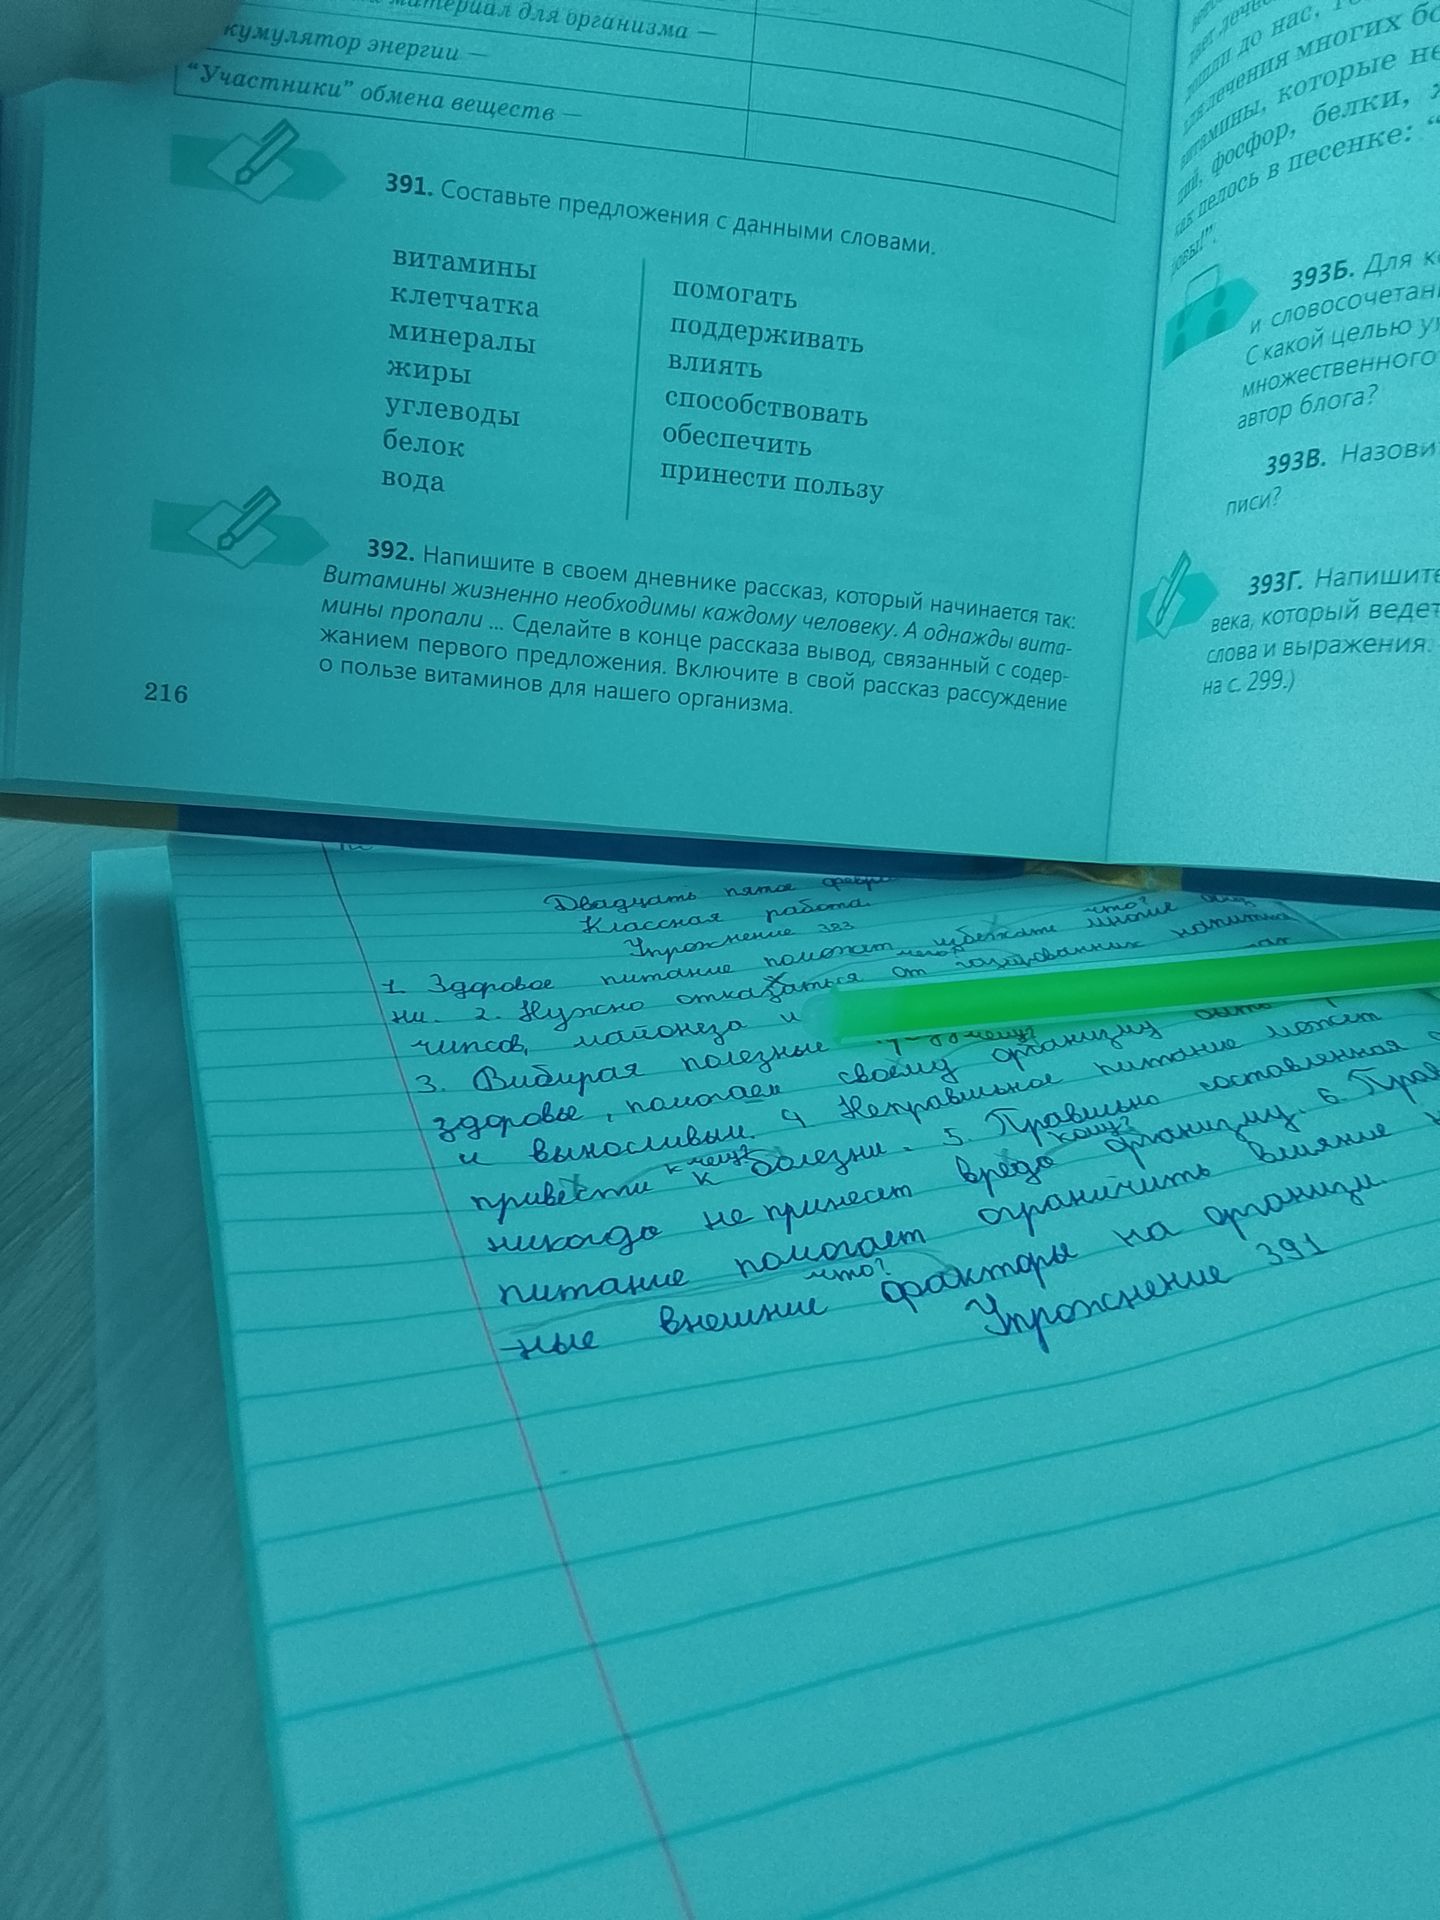 материал для организма —
кумулятор энергии —
“Участники” обмена веществ —
391. Составьте предложения с данными словами.
витамины
клетчатка
минералы
жиры
углеводы
белок
вода
помогать
поддерживать
влиять
способствовать
обеспечить
принести пользу
392. Напишите в своем дневнике рассказ, который начинается так:
Витамины жизненно необходимы каждому человеку. А однажды вита-
мины пропали ... Сделайте в конце рассказа вывод, связанный с содер-
жанием первого предложения. Включите в свой рассказ рассуждение
о пользе витаминов для нашего организма.
216
дошли до нас,
лечения многих
витамины, которые не
фосфор, белки,
как пелось в песенке:
393Б. Для
и словосочетан
С какой целью
множественного
автор блога?
393В. Назови
писи?
393Г. Напишите
века, который ведет
слова и выражения.
на с. 299.)
Двадцать пятое
Классная работа.
Упрожнение 383
что?
1. Здоровое питание поможет избежать многие
чего?
ни. 2. Нужно отказаться от газированных напитка
чипсов, майонеза и
3. Вибирая полезные
чему?
здоровье, помогаем своему организму быть
и выносливым. 4 Неправильное питание может
к чему?
привести к болезни. 5. Правильно составленная
кому?
никогда не принесет вреда организму. 6. Прав
питание помогает ограничить влияние
что?
-ные внешние факторы на организм.
Упрожнение 391